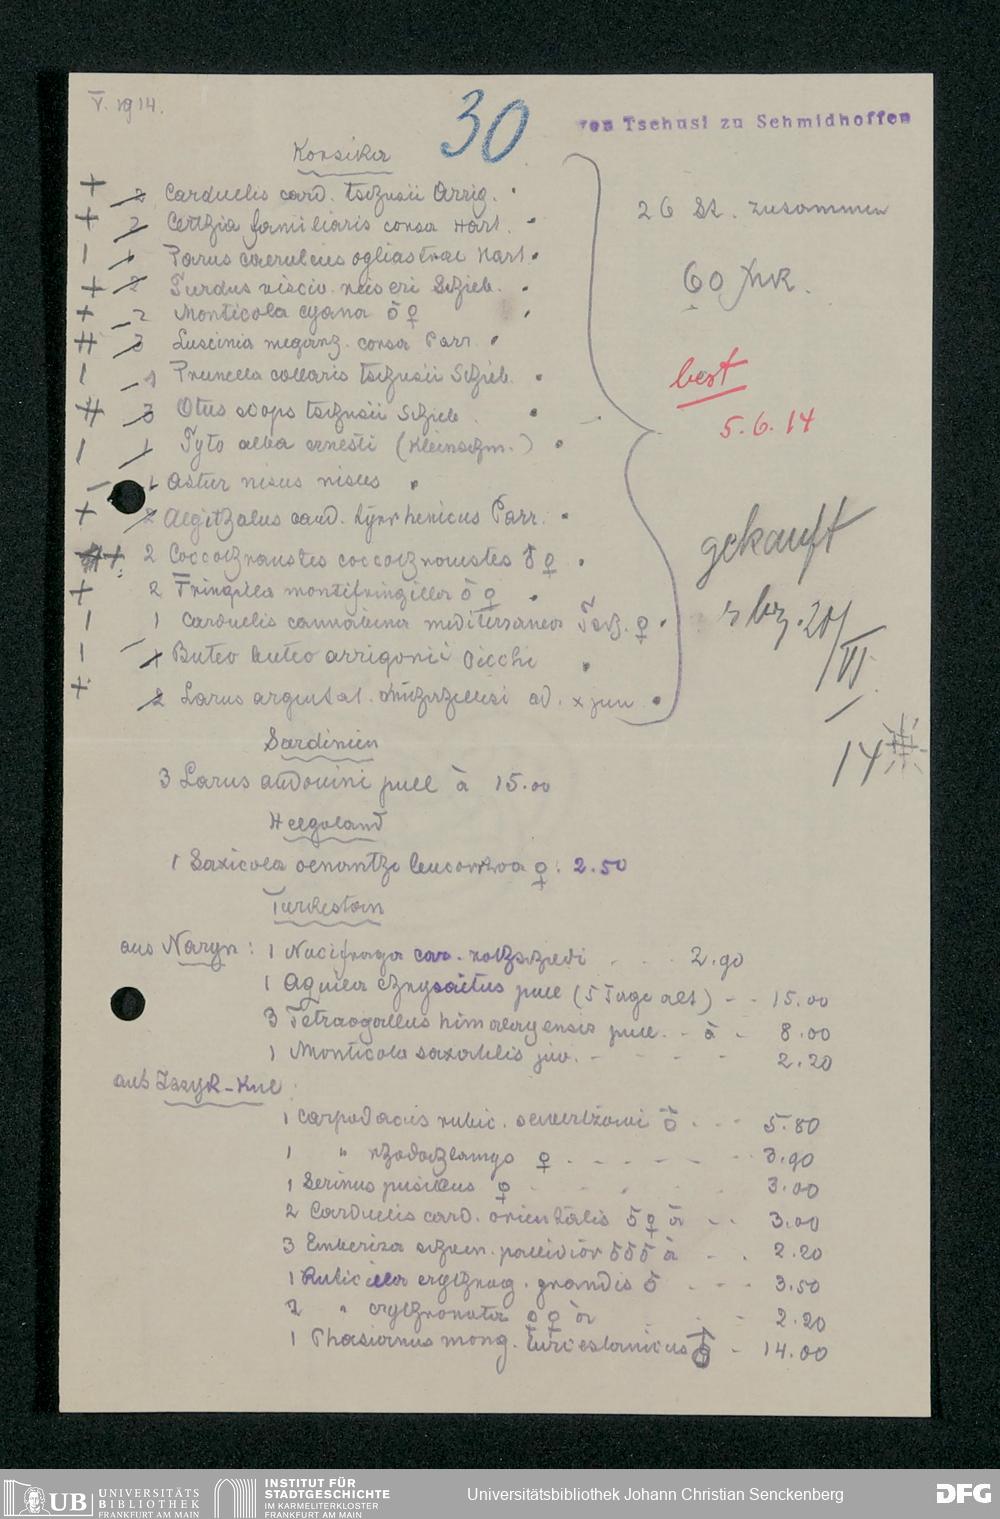 V. 1914.
30
von Tschusi zu Schmidhoffen
Korsika
+ 2 Carduelis card. tschusii Arrig.
+ 2 Certhia familiaris corsa Hart.
1 1 Parus caeruleus ogliastrae Hart.
+ 2 Turdus visciv. reiseri Schieb.
+ 2 Monticola cyana ♂ ♀
3 Luscinia megarh. corsa Parr.
1 1 Prunella collaris tschusii Schieb.
3 Otus scops tschusii Schieb.
1 1 Tyto alba ernesti (Kleinschm.)
– 1 Astur nisus nisus
+ 2 Aegithalus caud. tyrrhenicus Parr.
+ 2 Coccothraustes coccothraustes ♂ ♀
+ 2 Fringilla montifringilla ♂ ♀
1 1 Carduelis cannabina mediterranea Tsch. ♀
1 1 Buteo buteo arrigonii Picchi
+ 2 Larus argentat. michahellesi ad. x jun
26 St. zusammen
60 Mk.
best
5.6.14
gekauft
20/VI
14
Sardinien
3 Larus audouini pull à 15.00
Helgoland
1 Saxicola oenanthe leucorrhoa ♀: 2.50
Turkestan
aus Naryn: 1 Nucifraga car. rothschildi 2.90
1 Aquila chrysaëtus pull (5 Tage alt) 15.00
3 Tetraogallus himalayensis pull. à 8.00
1 Monticola saxatilis juv. 2.20
aus Issyk-Kul:
1 Carpodacus rubic. sewertzowi ♂ 5.80
1 " rhodochlamys ♀ 3.90
1 Serinus pusillus ♀ 3.00
2 Carduelis card. orientalis ♂ ♀ à 3.00
3 Emberiza schoen. pallidior ♂♂♂ à 2.20
1 Ruticilla erythrog. grandis ♂ 3.50
2 " erythronota ♀ ♀ à 2.20
1 Phasianus mong. turcestanicus ♂ 14.00
UB UNIVERSITÄTS
BIBLIOTHEK
FRANKFURT AM MAIN
INSTITUT FÜR
STADTGESCHICHTE
IM KARMELITERKLOSTER
FRANKFURT AM MAIN
Universitätsbibliothek Johann Christian Senckenberg
DFG